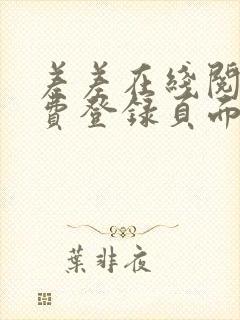 差差在綫閱
費登錄頁面
葉非夜